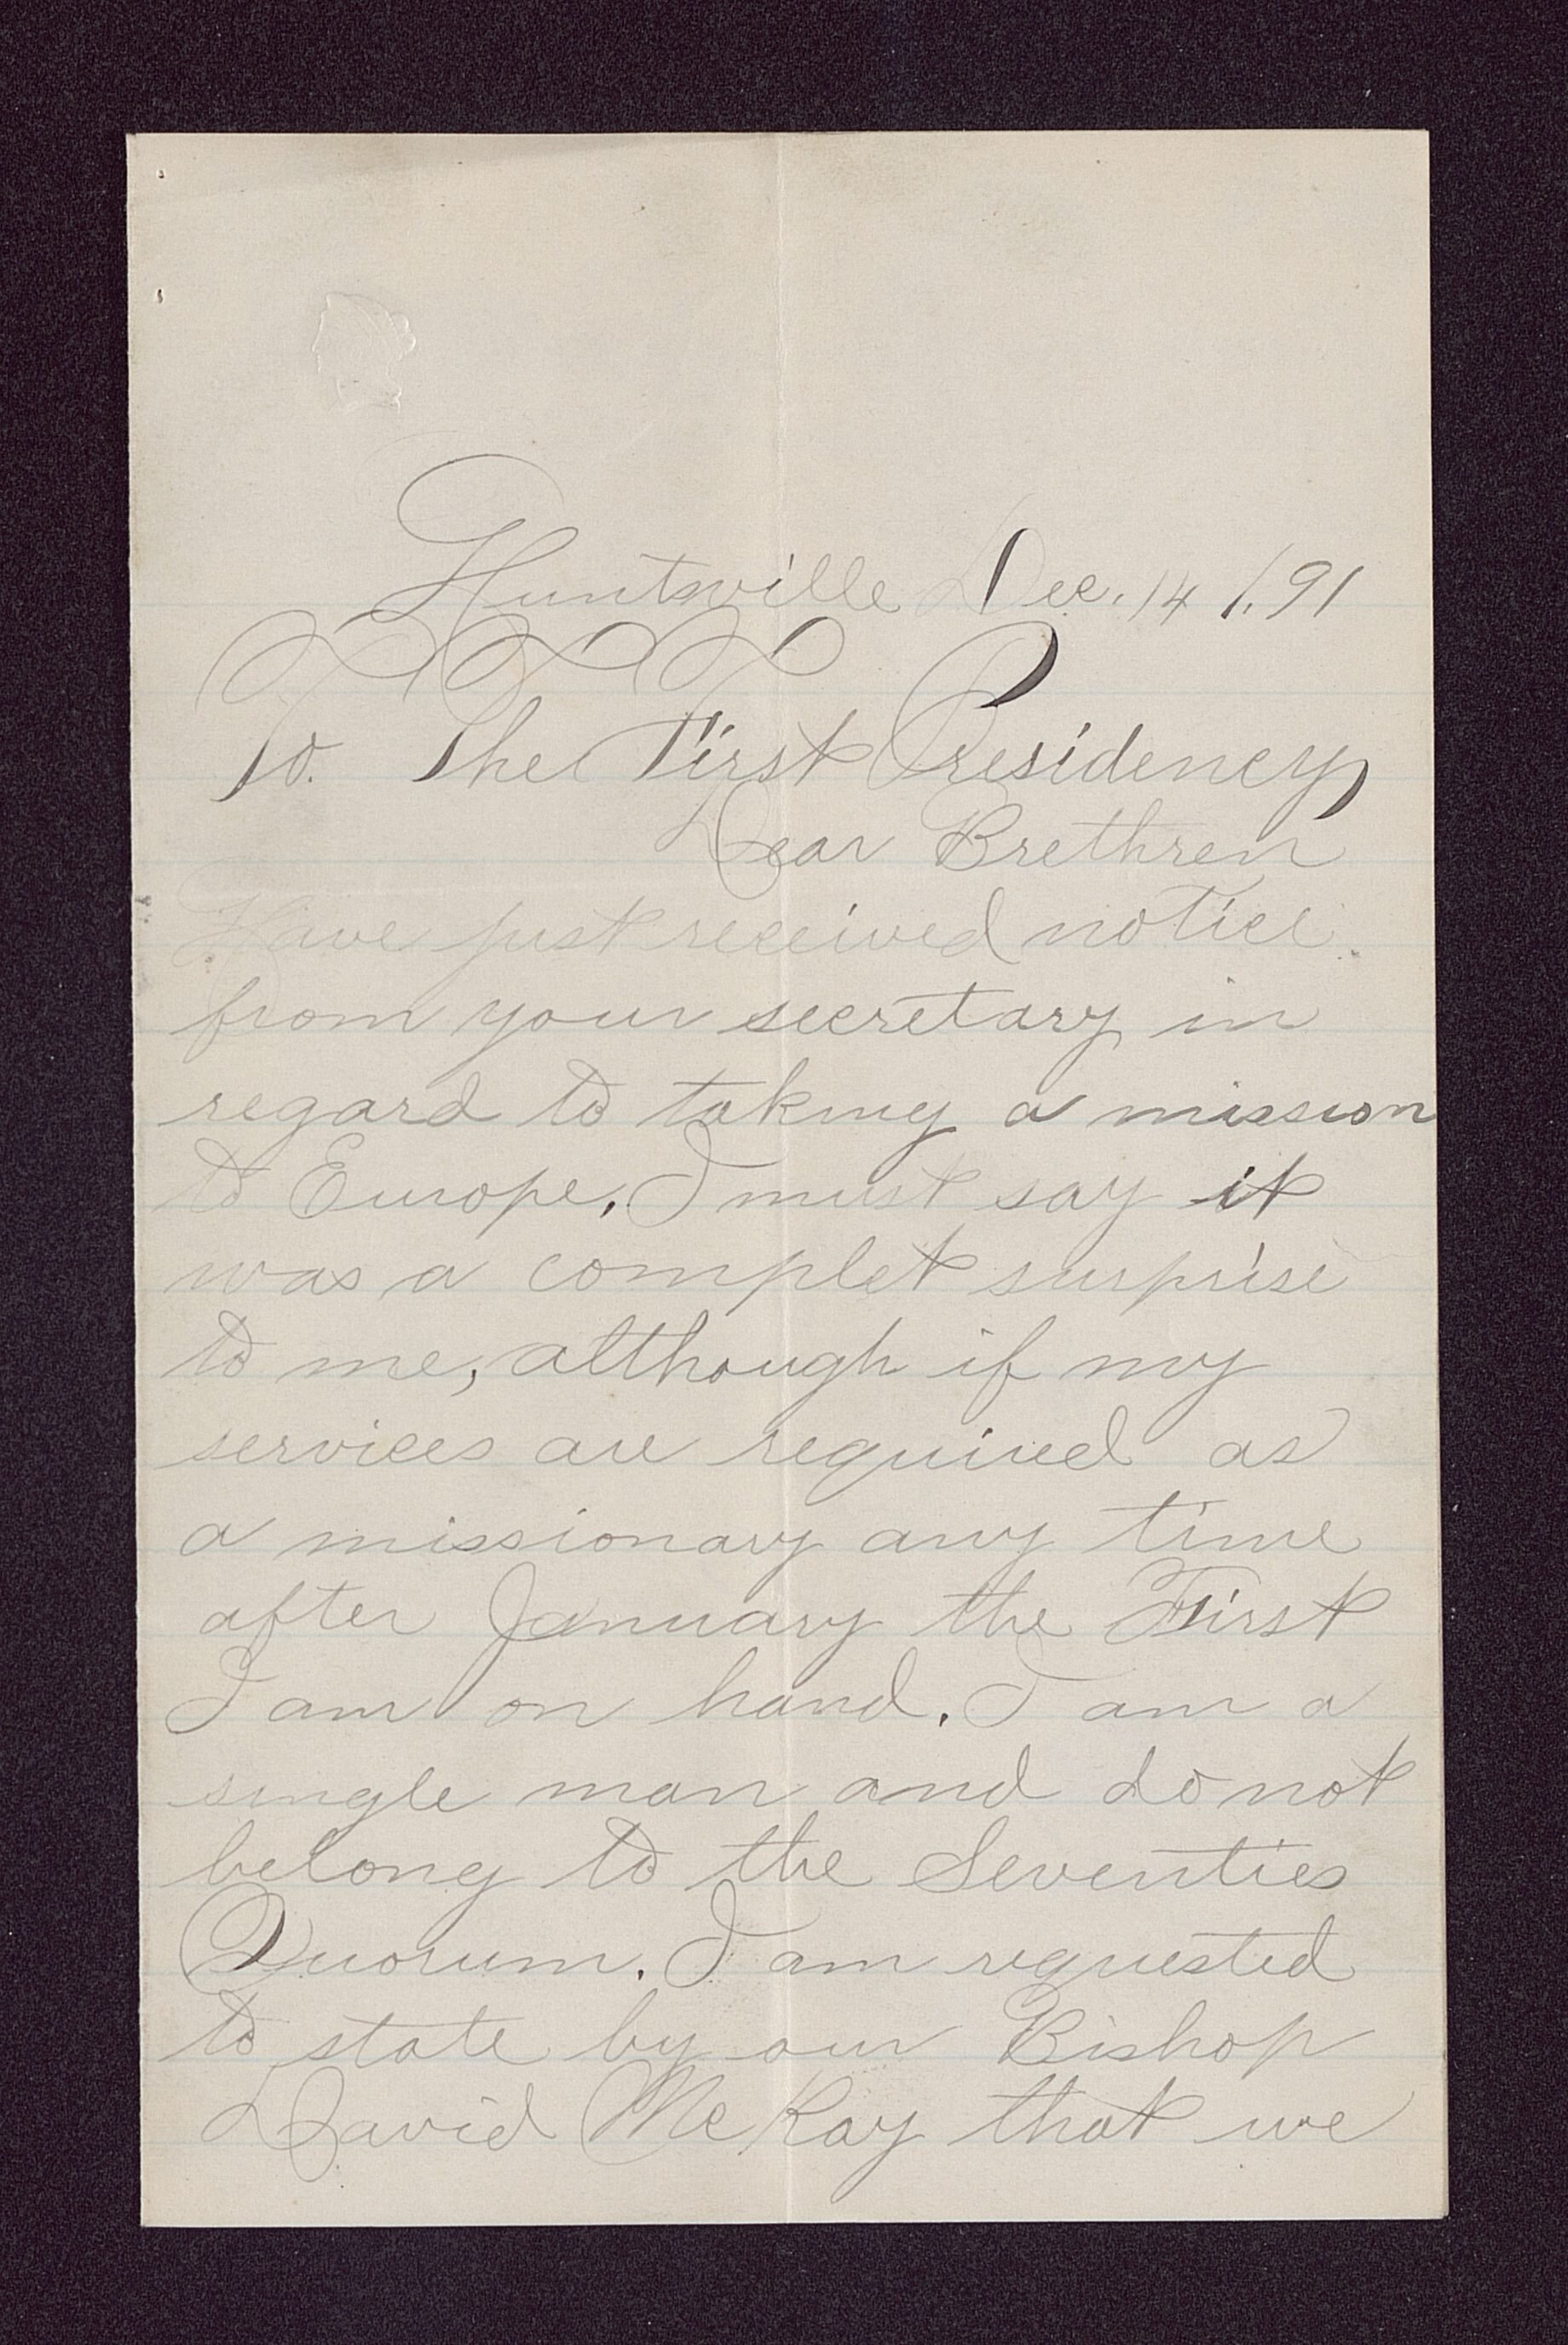 Huntsville Dec. 14 /.91
To. The First Presidency
Dear Brethren
Have just received notice
from your secretary in
regard to taking a mission
to Europe. I must say it
was a complet surprise
to me, although if my
services are required as
a missionary any time
after January the First
I am on hand. I am a
single man and do not
belong to the Seventies
Quorum. I am requested
to state by our Bishop
David McKay that we